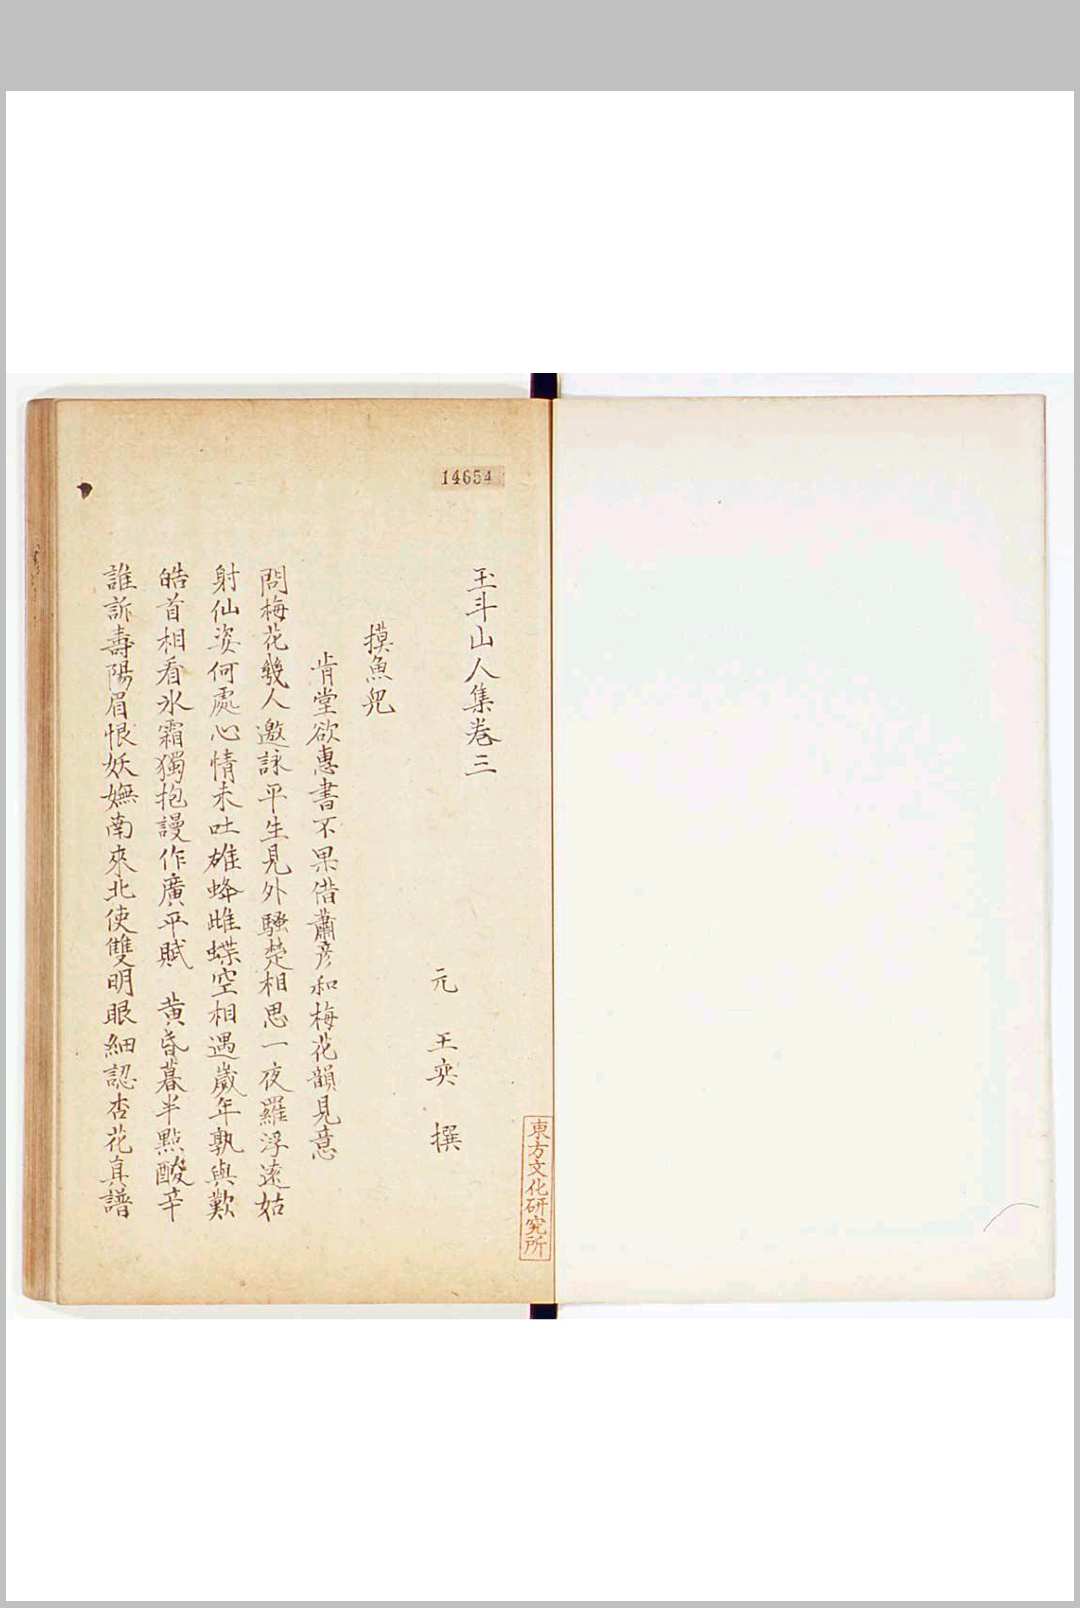 14654
玉斗山人集卷三
元　王奕　撰
摸魚兒
肯堂欲惠書不果借蕭彥和梅花韻見意
問梅花幾人邀詠平生見外騷楚相思一夜羅浮遠姑
射仙姿何處心情未吐雄蜂雌蝶空相遇歲年孰與歎
皓首相看氷霜獨抱謾作廣平賦　黃昏暮半點酸辛
誰訴壽陽眉恨妖嫵南來北使雙明眼細認杏花真譜
東方文化研究所